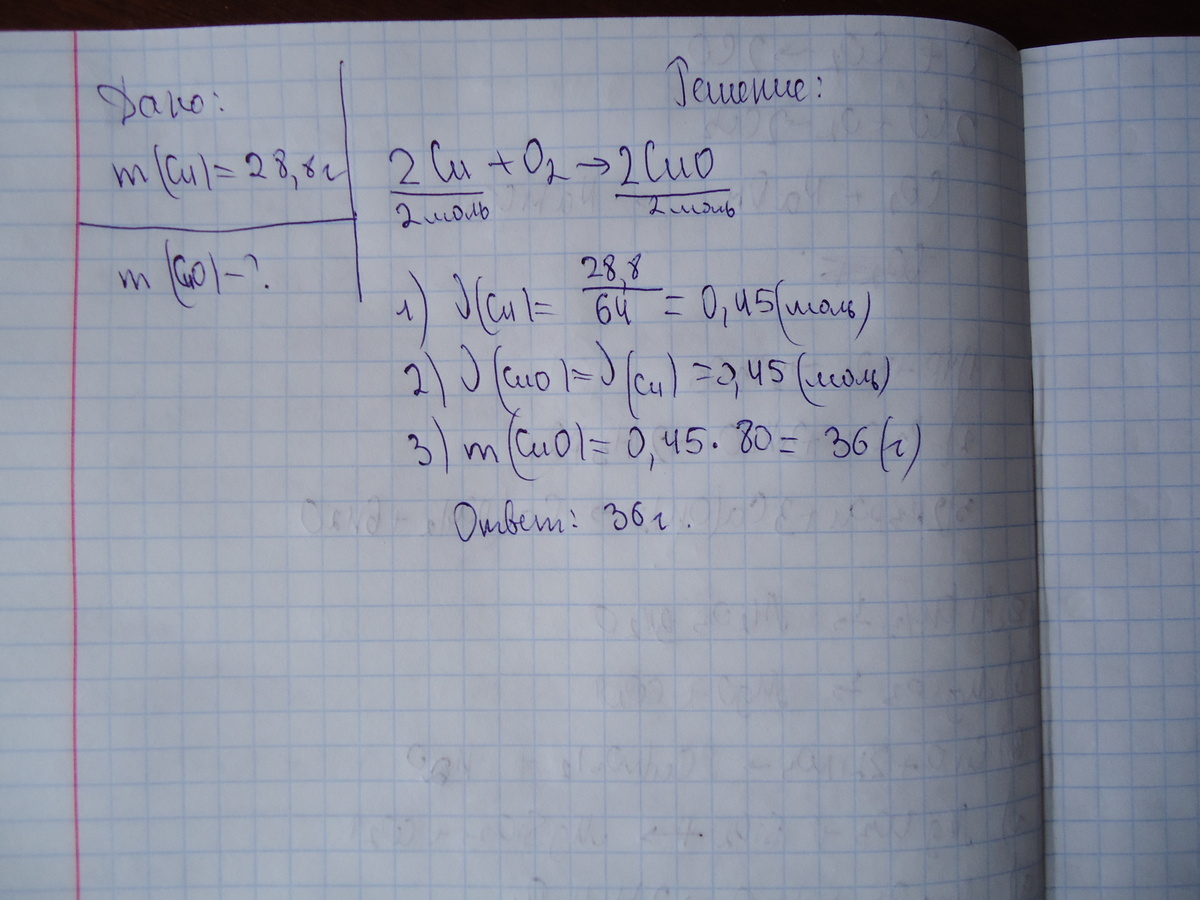 Дано:
m(Cu)=28,8г
m(CuO)-?
Решение:
2Cu+O₂→2CuO
2моль 2моль
1) ν(Cu)= 28,8/64 = 0,45(моль)
2) ν(CuO)=ν(Cu)=0,45(моль)
3) m(CuO)=0,45·80=36(г)
Ответ: 36г.